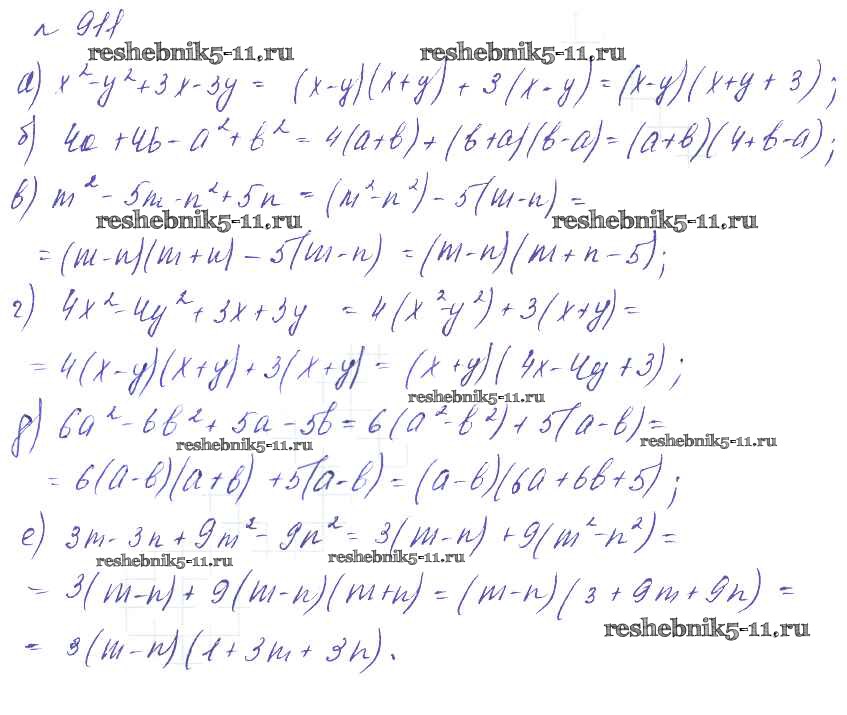 № 911
reshebnik5-11.ru reshebnik5-11.ru
а) x²-y²+3x-3y = (x-y)(x+y) + 3(x-y) = (x-y)(x+y+3);
б) 4a+4b-a²+b² = 4(a+b)+(b+a)(b-a) = (a+b)(4+b-a);
в) m²-5m-n²+5n = (m²-n²)-5(m-n) =
reshebnik5-11.ru reshebnik5-11.ru
= (m-n)(m+n)-5(m-n) = (m-n)(m+n-5);
г) 4x²-4y²+3x+3y = 4(x²-y²)+3(x+y) =
= 4(x-y)(x+y)+3(x+y) = (x+y)(4x-4y+3);
reshebnik5-11.ru
д) 6a²-6b²+5a-5b = 6(a²-b²)+5(a-b) =
reshebnik5-11.ru reshebnik5-11.ru
= 6(a-b)(a+b)+5(a-b) = (a-b)(6a+6b+5);
е) 3m-3n+9m²-9n² = 3(m-n)+9(m²-n²) =
reshebnik5-11.ru reshebnik5-11.ru
= 3(m-n)+9(m-n)(m+n) = (m-n)(3+9m+9n) =
reshebnik5-11.ru
= 3(m-n)(1+3m+3n).